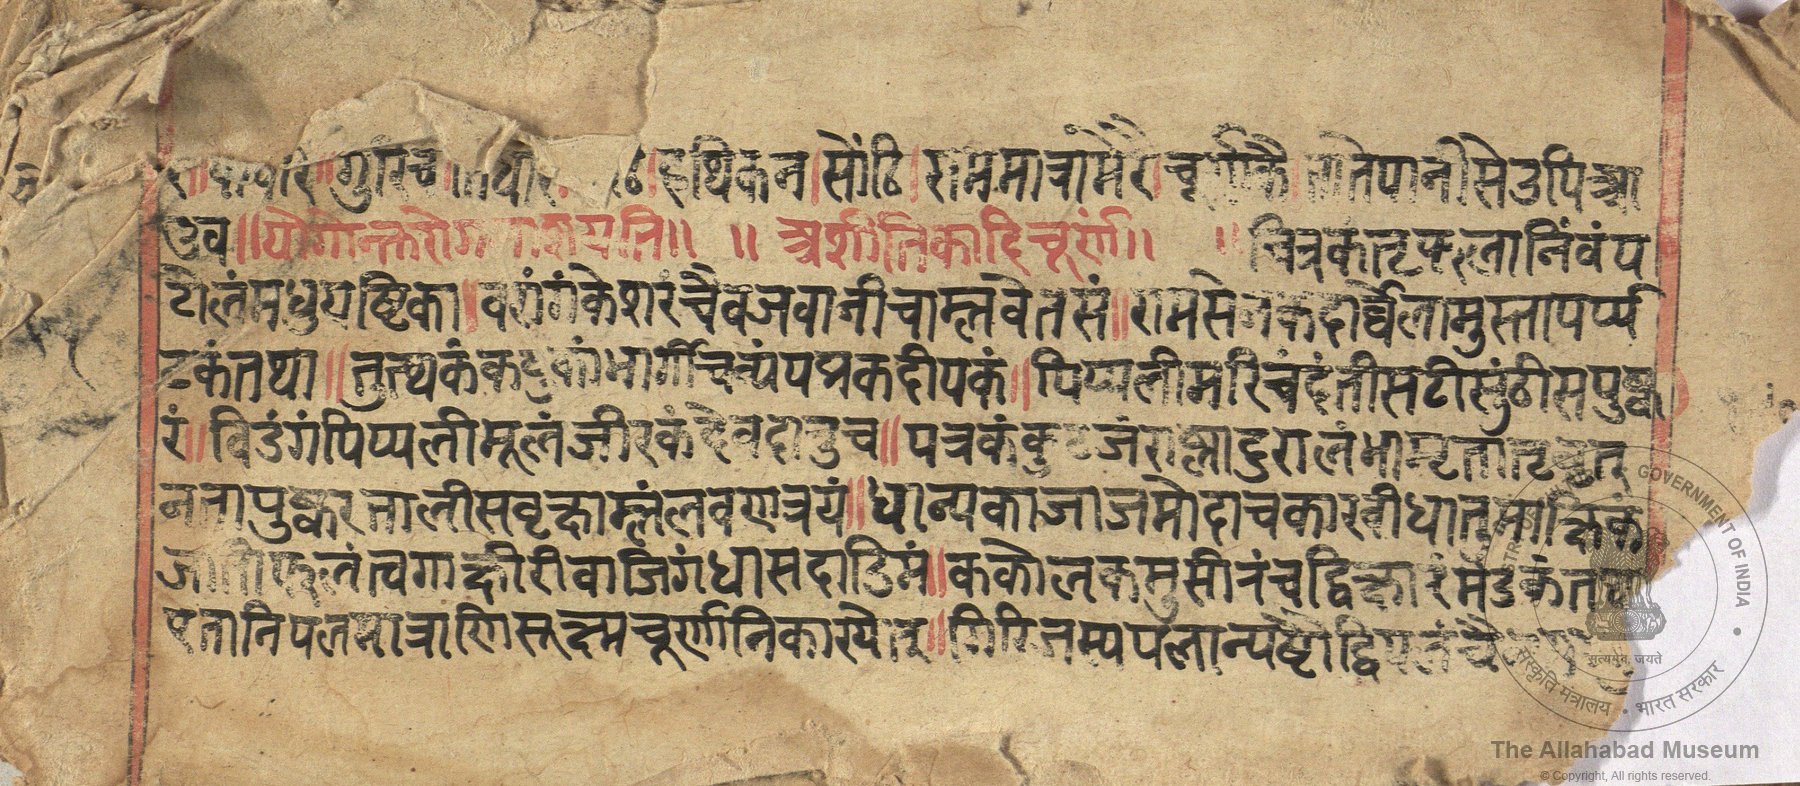 गुरिच हथिकन । सोंठि । राममात्रामैरे । चूर्णकै । तातेपानीसेउपिआ
उव ॥ योगोनक्तरोग नाशयति ॥ ॥ अर्शीतिकादिचूर्ण ॥ ॥ चित्रकतृफलानिंवंप
टोलंमधुयष्टिका । वगंगंकेशरंचैवजवानीचाम्लवेतसं ॥ रामसेनकदार्व्वेलामुस्तापर्प्प
टकंतथा ॥ तुत्थकंकटुकांभार्गीचव्यंपप्रकदीपकं ॥ पिप्पलीमरिचंदंतीसटीसुंठीसपुष्क
रं ॥ विडंगंपिप्पलीमूलंजीरकंदेवदारुच ॥ पत्रकंकुटजंरास्नादुरालंभामृता
पुष्करतालीसवृक्षाम्लंलवणत्रयं ॥ धान्यकाजाजमोदाचकारवीधातुमाक्षिकं
जातीफलंत्वगाक्षीरीवाजिगंधासदाडिमं ॥ ककोलकमुसीरंचद्विक्षारं
एतानिपलमात्राणिसूक्ष्मचूर्णानिकारयेत् ॥ गिरिजस्यपलान्यष्टौद्विपलंचै
TRUST GOVERNMENT OF INDIA
सत्यमेव जयते
संस्कृति मंत्रालय • भारत सरकार
The Allahabad Museum
© Copyright, All rights reserved.